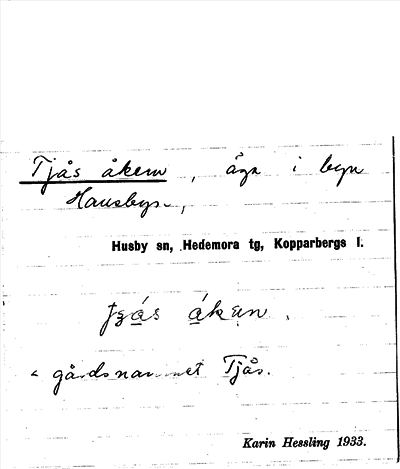 Tjås åkern, äga i byn
Hansbyn,
Husby sn, Hedemora tg, Kopparbergs l.
åkun.
< gårdsnamnet Tjås.
Karin Hessling 1933.